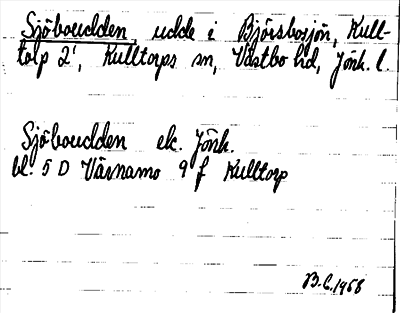 Sjöboudden, udde i Björsbosjön, Kull-
torp 2¹, Kulltorps sn, Västbo hd, Jönk. l.
Sjöboudden ek. Jönk.
bl. 5 D Värnamo 9 f Kulltorp
B.C. 1968